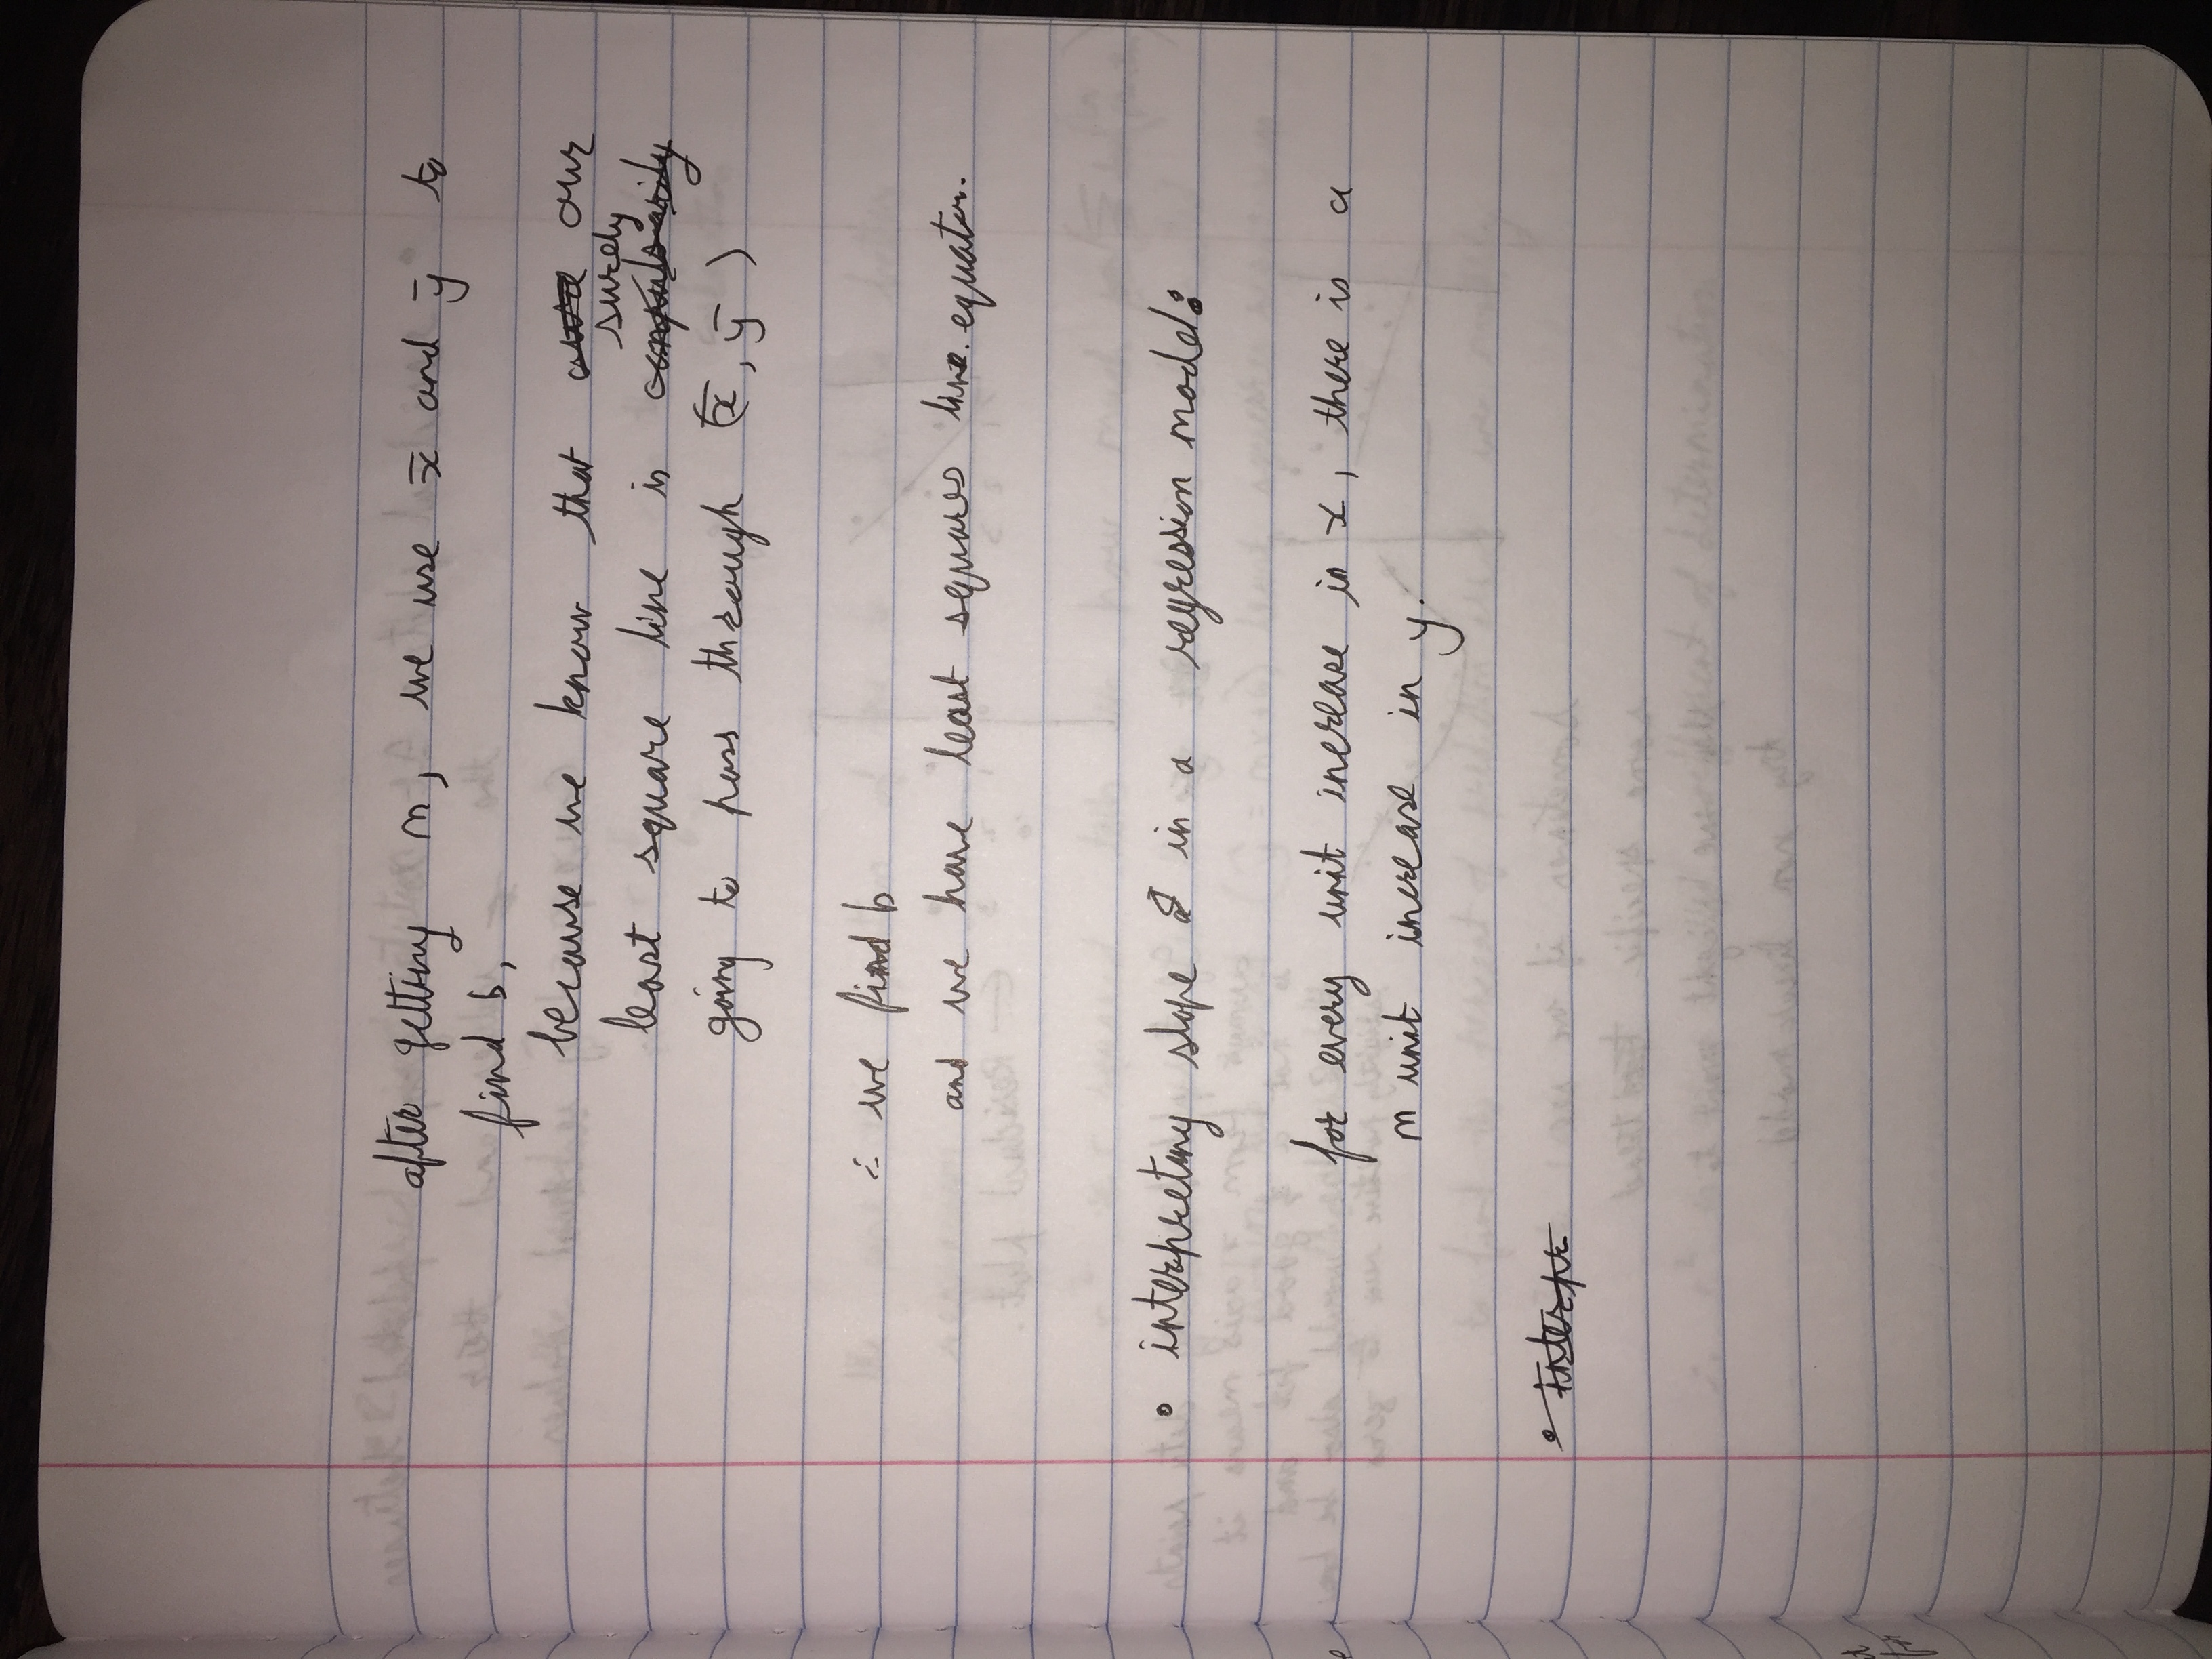 after getting m, we use x̄ and ȳ to
find b,
because we know that our
surely
least square line is compulsarily
going to pass through (x̄, ȳ)
∴ we find b
and we have least squares line. equation.
• interpreting slope in a regression model:
for every unit increase in x, there is a
m unit increase in y.
• interpr